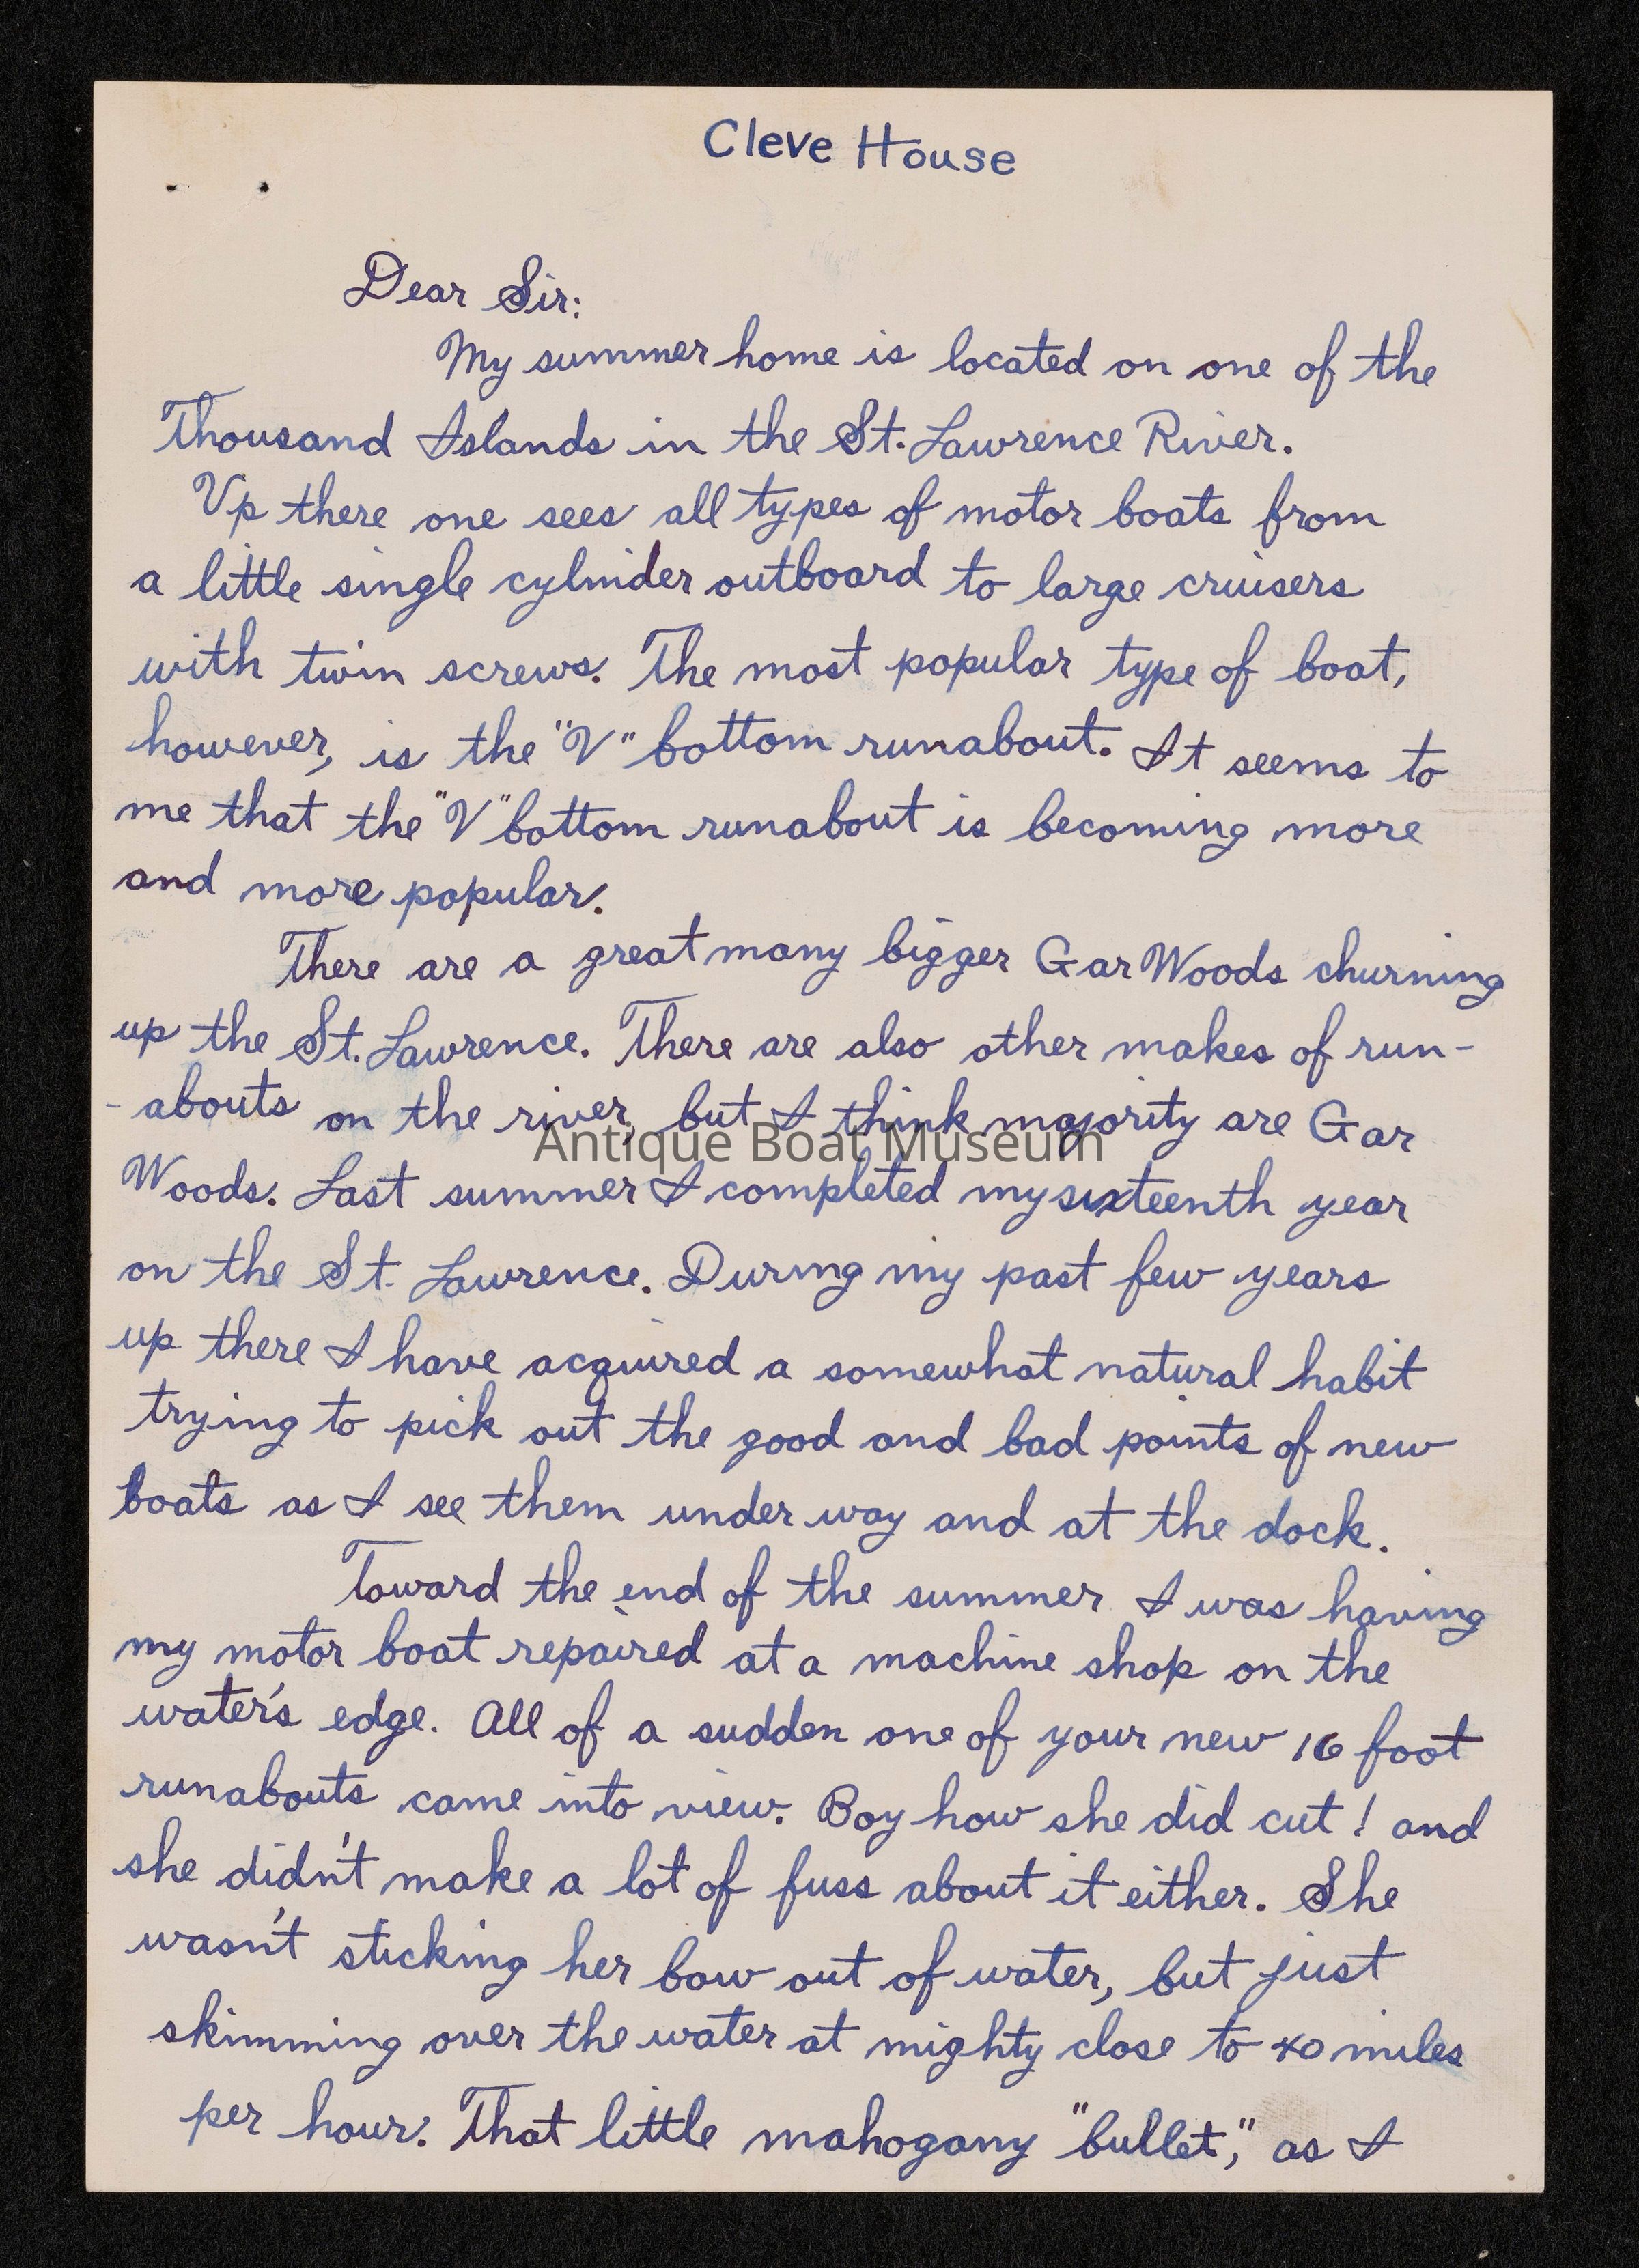 Cleve House
Dear Sir:
My summer home is located on one of the
Thousand Islands in the St. Lawrence River.
Up there one sees all types of motor boats from
a little single cylinder outboard to large cruisers
with twin screws. The most popular type of boat,
however, is the "V" bottom runabout. It seems to
me that the "V" bottom runabout is becoming more
and more popular.
There are a great many bigger Gar Woods churning
up the St. Lawrence. There are also other makes of run-
-abouts on the river, but I think majority are Gar
Antique Boat Museum
Woods. Last summer I completed my sixteenth year
on the St. Lawrence. During my past few years
up there I have acquired a somewhat natural habit
trying to pick out the good and bad points of new
boats as I see them under way and at the dock.
Toward the end of the summer I was having
my motor boat repaired at a machine shop on the
water's edge. All of a sudden one of your new 16 foot
runabouts came into view. Boy how she did cut! and
she didn't make a lot of fuss about it either. She
wasn't sticking her bow out of water, but just
skimming over the water at mighty close to 40 miles
per hour. That little mahogany "bullet," as I